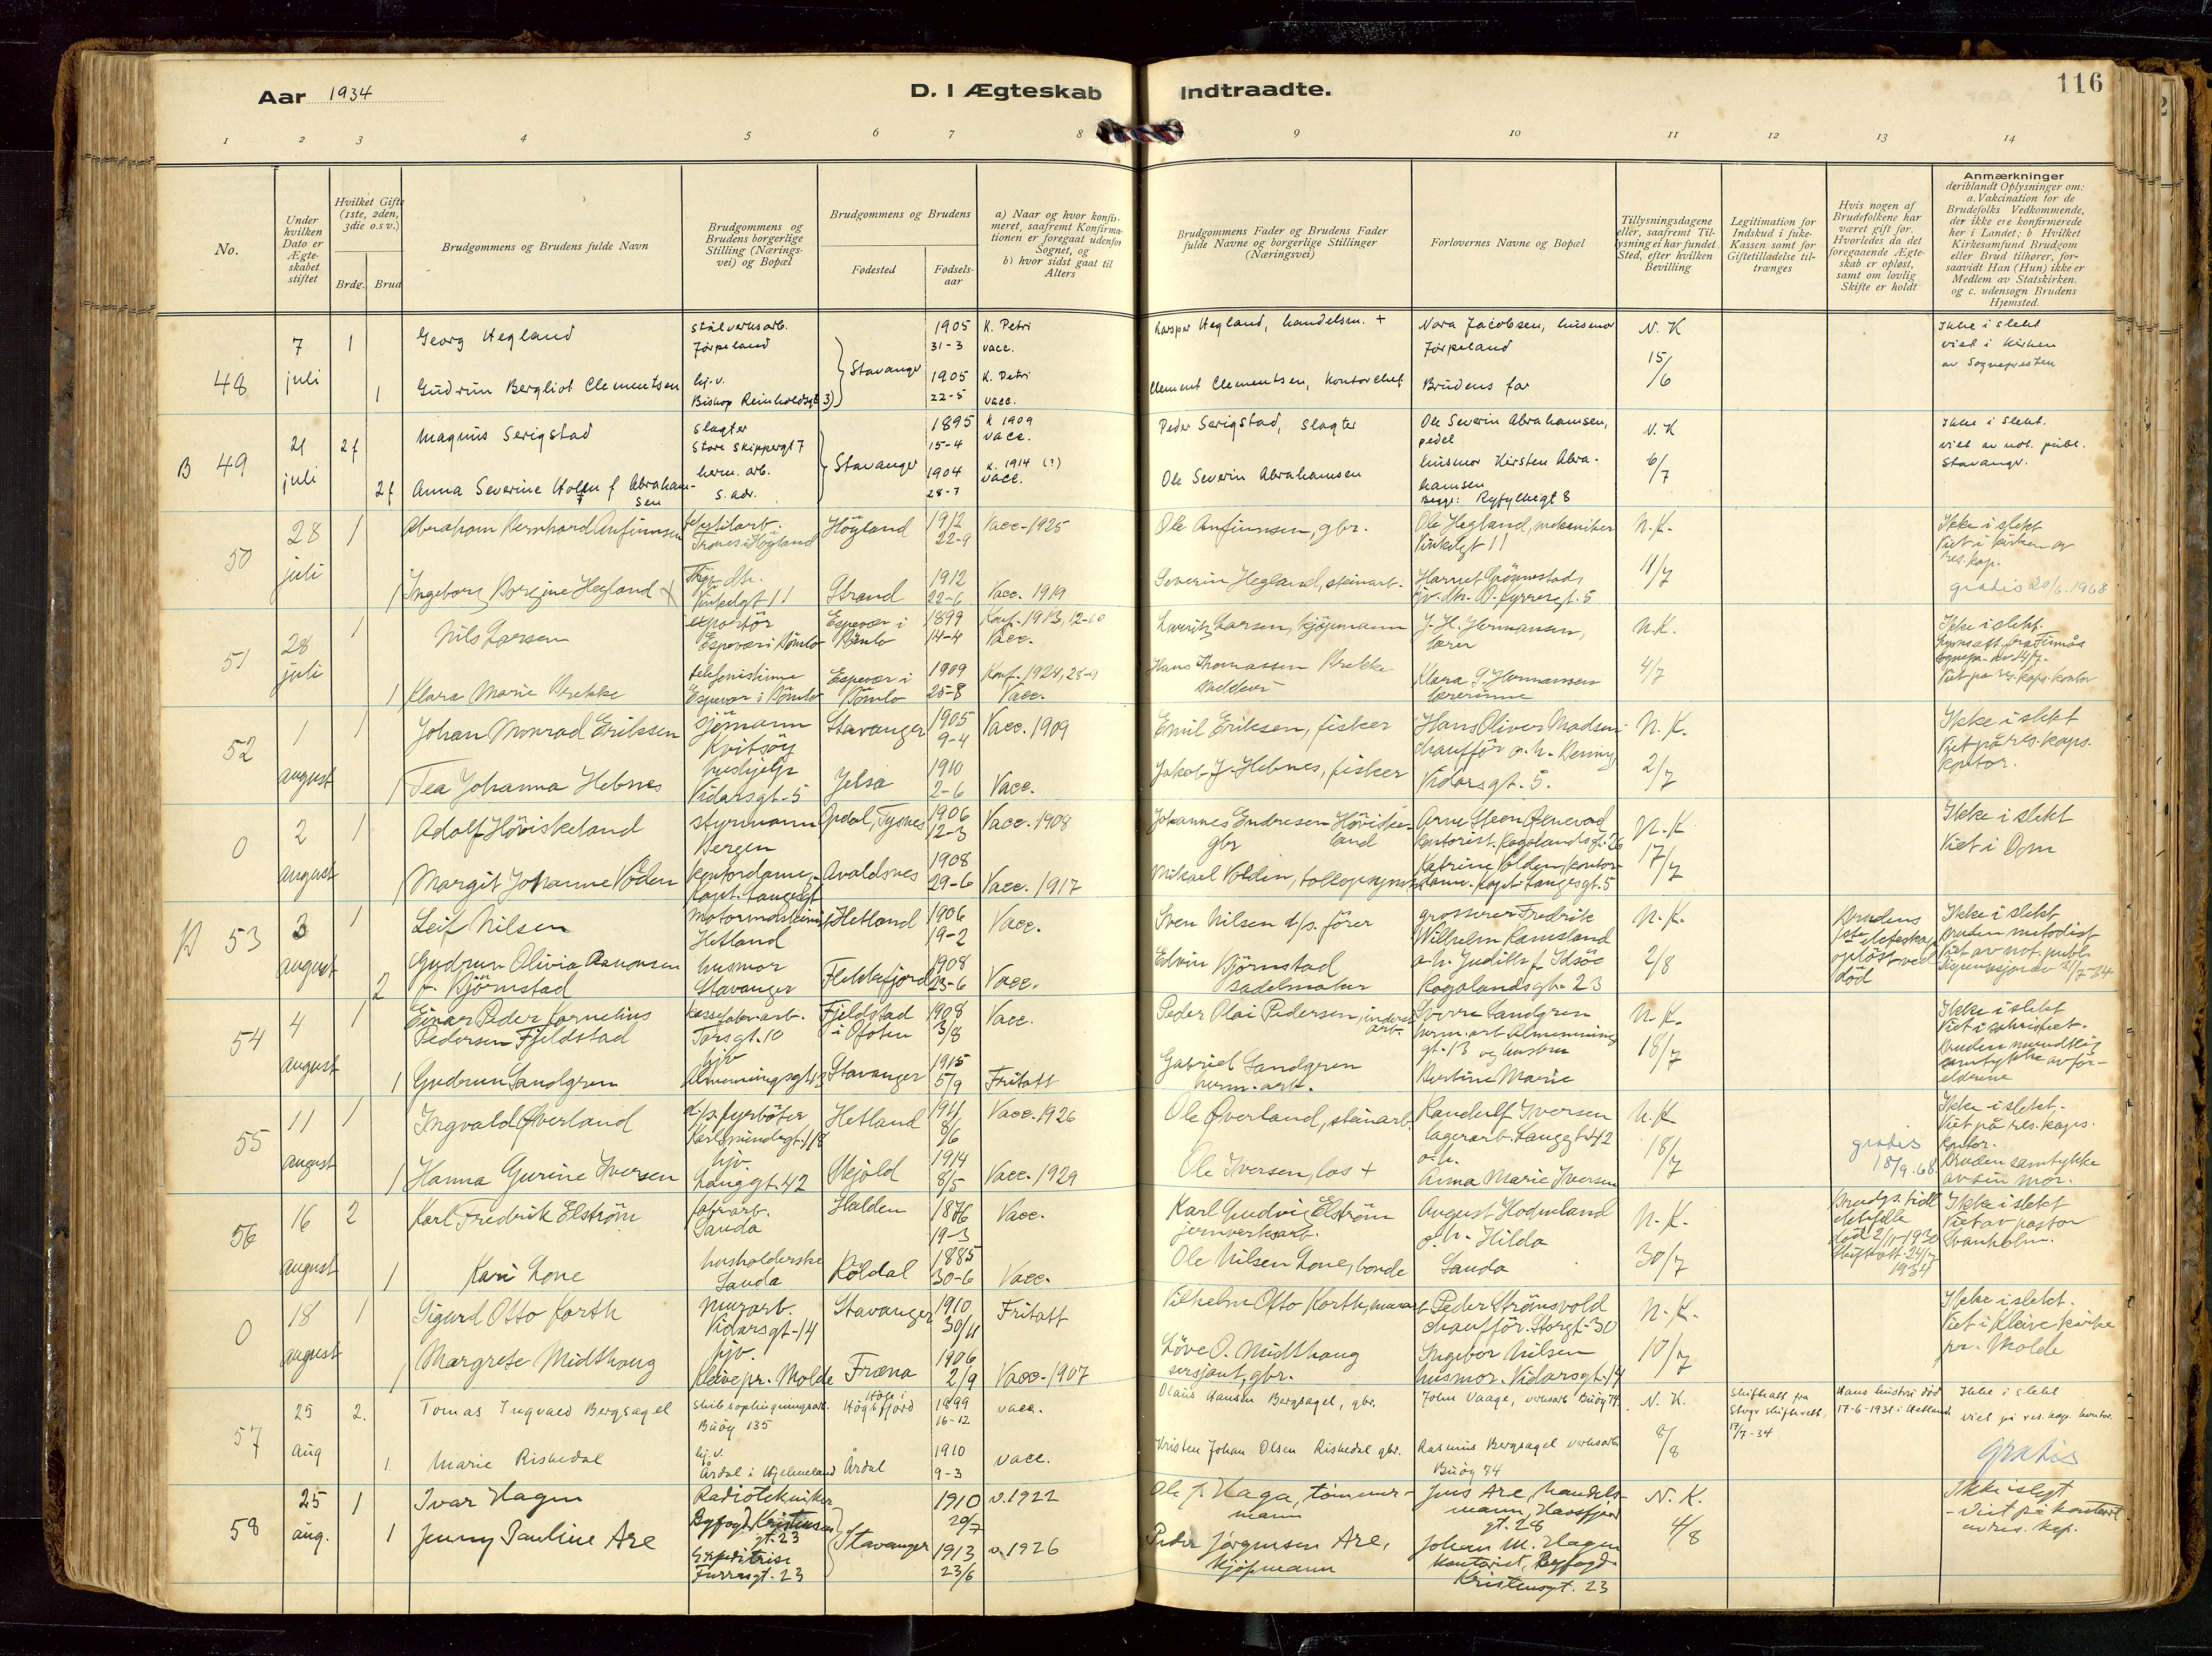 Aar 1934
D. I Ægteskab Indtraadte.
116
1 2 3 4 5 6 7 8 9 10 11 12 13 14
No.
Under hvilken Dato er Ægteskabet stiftet
Hvilket Gifte (1ste, 2den, 3die o.s.v.)
Brdg. Brud
Brudgommens og Brudens fulde Navn
Brudgommens og Brudens borgerlige Stilling (Næringsvei) og Bopæl
Brudgommens og Brudens
Fødested
Fødselsaar
a) Naar og hvor konfirmeret, saafremt Konfirmationen er foregaat udenfor Sognet, og
b) hvor sidst gaat til Alters
Brudgommens Fader og Brudens Fader fulde Navne og borgerlige Stillinger (Næringsvei)
Forlovernes Navne og Bopæl
Tillysningsdagene eller, saafremt Tillysning ei har fundet Sted, efter hvilken Bevilling
Legitimation for Indskud i Enke-Kassen samt for Giftetilladelse tiltrænges
Hvis nogen af Brudefolkene har været gift før. Hvorledes da det foregaaende Ægteskab er opløst, samt om lovlig Skifte er holdt
Anmærkninger
deriblandt Oplysninger om: a. Vakcination for de Brudefolks Vedkommende, der ikke ere konfirmerede her i Landet; b Hvilket Kirkesamfund Brudgom eller Brud tilhører, forsaavidt Han (Hun) ikke er Medlem av Statskirken. og c. udensogn Brudens Hjemsted.
48
7 juli
1
Georg Hegland
stålverksarb.
Jørpeland
Stavanger
1905
31-3
K. Petri
vacc.
Kasper Hegland, handelsm. +
Nora Jacobsen, husmor
Jørpeland
N. K
15/6
Ikke i slekt
viet i kirken
av Sognepresten
1
Gudrun Bergliot Clementsen
hj.v.
Biskop Reinholdsgt 3)
1905
22-5
K. Petri
vacc.
Clement Clementsen, kontorchef
Brudens far
B 49
21 juli
2f
Magnus Serigstad
slagter
Store Skippergt 7
Stavanger
1895
15-4
K 1909
vacc.
Peder Serigstad, slagter
Ole Severin Abrahamsen,
pedel
N. K
6/7
Ikke i slekt.
viet av not. publ.
Stavanger.
2f
Anna Severine Holen f Abrahamsen
herm. arb.
s. adr.
1904
28-7
K. 1914 (?)
vacc.
Ole Severin Abrahamsen
husmor Kirsten Abrahamsen
Begge: Ryfylkegt 8
50
28 juli
1
Abraham Bernhard Anfinnsen
tekstilarb.
Trones i Høyland
Höyland
1912
22-9
Vacc. 1925
Ole Anfinnsen, gbr.
Ole Hegland, mekaniker
Vinkelgt 11
N.K.
11/7
Ikke i slekt
Viet i kirken av
res. kap.
gratis 20/6. 1968
1
Ingeborg Bergine Hegland
Vinkelgt 11
Strand
1912
22-6
Vacc. 1919
Severin Hegland, steinarb.
51
28 juli
1
Nils Larsen
exportör
Espevær i Bömlo
Espevær i
Bömlo
1899
14-4
Konf. 1913, 12-10
Vacc.
Lauritz Larsen, kjöpmann
J. H. Hermansen,
lærer
N.K.
4/7
Ikke i slekt.
Viet på res. kaps. kontor
1
Klara Marie Brekke
telefonistinne
Espevær i Bömlo
Espevær i
Bömlo
1909
25-8
Konf. 1924, 28-9
Vacc.
Hans Thomassen Brekke
Klara G. Hermansen
lærerinne
52
1 august
1
Johan Monrad Eriksen
Sjömann
Kvitsöy
Stavanger
1905
9-4
Vacc. 1909
Emil Eriksen, fisker
Hans Oliver Madsen
chaufför o. h. Nenny
Vidarsgt. 5.
N.K.
2/7
Ikke i slekt
Viet på res. kaps.
kontor.
1
Tea Johanna Hebnes
hushjelp
Vidarsgt. 5
Jelsa
1910
2-6
Vacc.
Jakob J. Hebnes, fisker
0
2 august
1
Adolf Höviskeland
styrmann
Bergen
Opdal, Tysnes
1906
12-3
Vacc. 1908
Johannes Endresen Höviskeland
gbr
kontorist. Rogalandsgt. 26
N.K
17/7
Ikke i slekt
Viet i Dom
1
Margit Johanne Volden
kontordame,
Kapt. Langesgt
Avaldsnes
1908
29-6
Vacc. 1917
Mikael Volden,
Katrine Volden, kontordame. Kapt. Langesgt. 5
53
3 august
1
Leif Nilsen
Hetland
Hetland
1906
19-2
Vacc.
Sven Nilsen d/s. förer
grosserer Fredrik
Wilhelm Ramsland
o. h. Judith f. Idsöe
Rogalandsgt. 23
N.K.
2/8
Brudens
1ste ekteskap
oplöst ved
död
Ikke i slekt
Bruden metodist
Viet av not. publ.
2
Gudrun Olivia Aanonsen
f. Björnstad
husmor
Stavanger
Flekkefjord
1908
23-6
Vacc.
Edvin Björnstad
sadelmaker
54
4 august
1
Einar Peder Cornelius
Pedersen Fjeldstad
kassefabr. arb.
Torsgt. 10
Fjeldstad
i Ofoten
1908
3/8
Vacc.
Peder Olai Pedersen,
Sandgren
herm. arb Almenningsgt. 13 og hustru
Bertine Marie
N.K.
18/7
Ikke i slekt
Viet i sakristiet.
Bruden mundtlig
samtykke av foreldrene
1
Gudrun Sandgren
hjv
Almenningsgt 13
Stavanger
1915
5/9
Fritatt
Gabriel Sandgren
herm. arb.
55
11 august
1
Ingvald Øverland
d/s. fyrböter
Karlsminnegt. 118
Hetland
1911
8/6
Vacc. 1926
Ole Øverland, steinarb.
Randulf Iversen
lagerarb. Langgt 42
o. h.
Anna Marie Iversen
N.K
18/7
gratis
18/9. 68
Ikke i slekt.
Viet på res. kaps.
kontor.
Bruden samtykke
av sin mor.
1
Hanna Gurine Iversen
hjv.
Langgt. 42
Skjold
1914
8/5
Vacc. 1929
Ole Iversen, los +
56
16 august
2
Karl Fredrik Elström
fabr.arb.
Sauda
Halden
1876
19-3
Vacc.
Karl Ludvig Elström
jernverksarb.
August Hodneland
o. h. Hilda
Sauda
N.K.
30/7
Brudgs. tidl
ektefelle
död 2/11-1930
Skifteatt. 24/7
1934
Ikke i slekt
Viet av pastor
Svanholm.
1
Kari Lone
husholderske
Sauda
Röldal
1885
30-6
Vacc.
Ole Nilsen Lone, bonde
0
18 august
1
Sigurd Otto Korth
murarb.
Vidarsgt. 14
Stavanger
1910
30/11
Fritatt
Vilhelm Otto Korth, murarb
Peder Strömsvold
chaufför. Storgt. 30
N.K.
10/7
Ikke i slekt.
Viet i Kleive kirke
pr. Molde
1
Margrete Midthaug
hjv.
Kleive pr. Molde
Fræna
1906
2/9
Vacc. 1907
Löve O. Midthaug
sersjant, gbr.
Ingebor Nilsen
husmor. Vidarsgt. 14
57
25 aug
2.
Tomas Ingvald Bergsagel
skibsophugningsarb.
Buöy 135
Höle i
Högsfjord
1899
16-12
vacc.
Olaus Hansen Bergsagel, gbr.
John Vaage, verksarb Buöy 74.
N. K.
8/8
Skifteatt fra
Stvgr skifterett,
17/7-34
Hans hustru död
17-6-1931 i Hetland
Ikke i slekt
viet på res. kap. kontor.
gratis
1.
Marie Riskedal
hj.v.
Årdal i Hjelmeland
Årdal
1910
9-3
vacc.
Kristen Johan Olsen Riskedal gbr.
Rasmus Bergsagel verksarb
Buöy 74
58
25 aug.
1
Ivar Hagen
Radiotekniker
Byfogd Kristensens
gt. 23
Stavanger
1910
20/7
v. 1922
Ole J. Haga, tömmermann
Jens Are, handelsmann, Havsfjord
gt. 28
N. K.
4/8
Ikke i slegt
- Viet på kontoret
av res. kap.
1
Jenny Pauline Are
Expeditrise
Furrasgt. 23
1913
23/6
v. 1926
Peder Jörgensen Are,
kjöpmann
Johan M. Hagen
kontorist, Byfogd
Kristensgt. 23